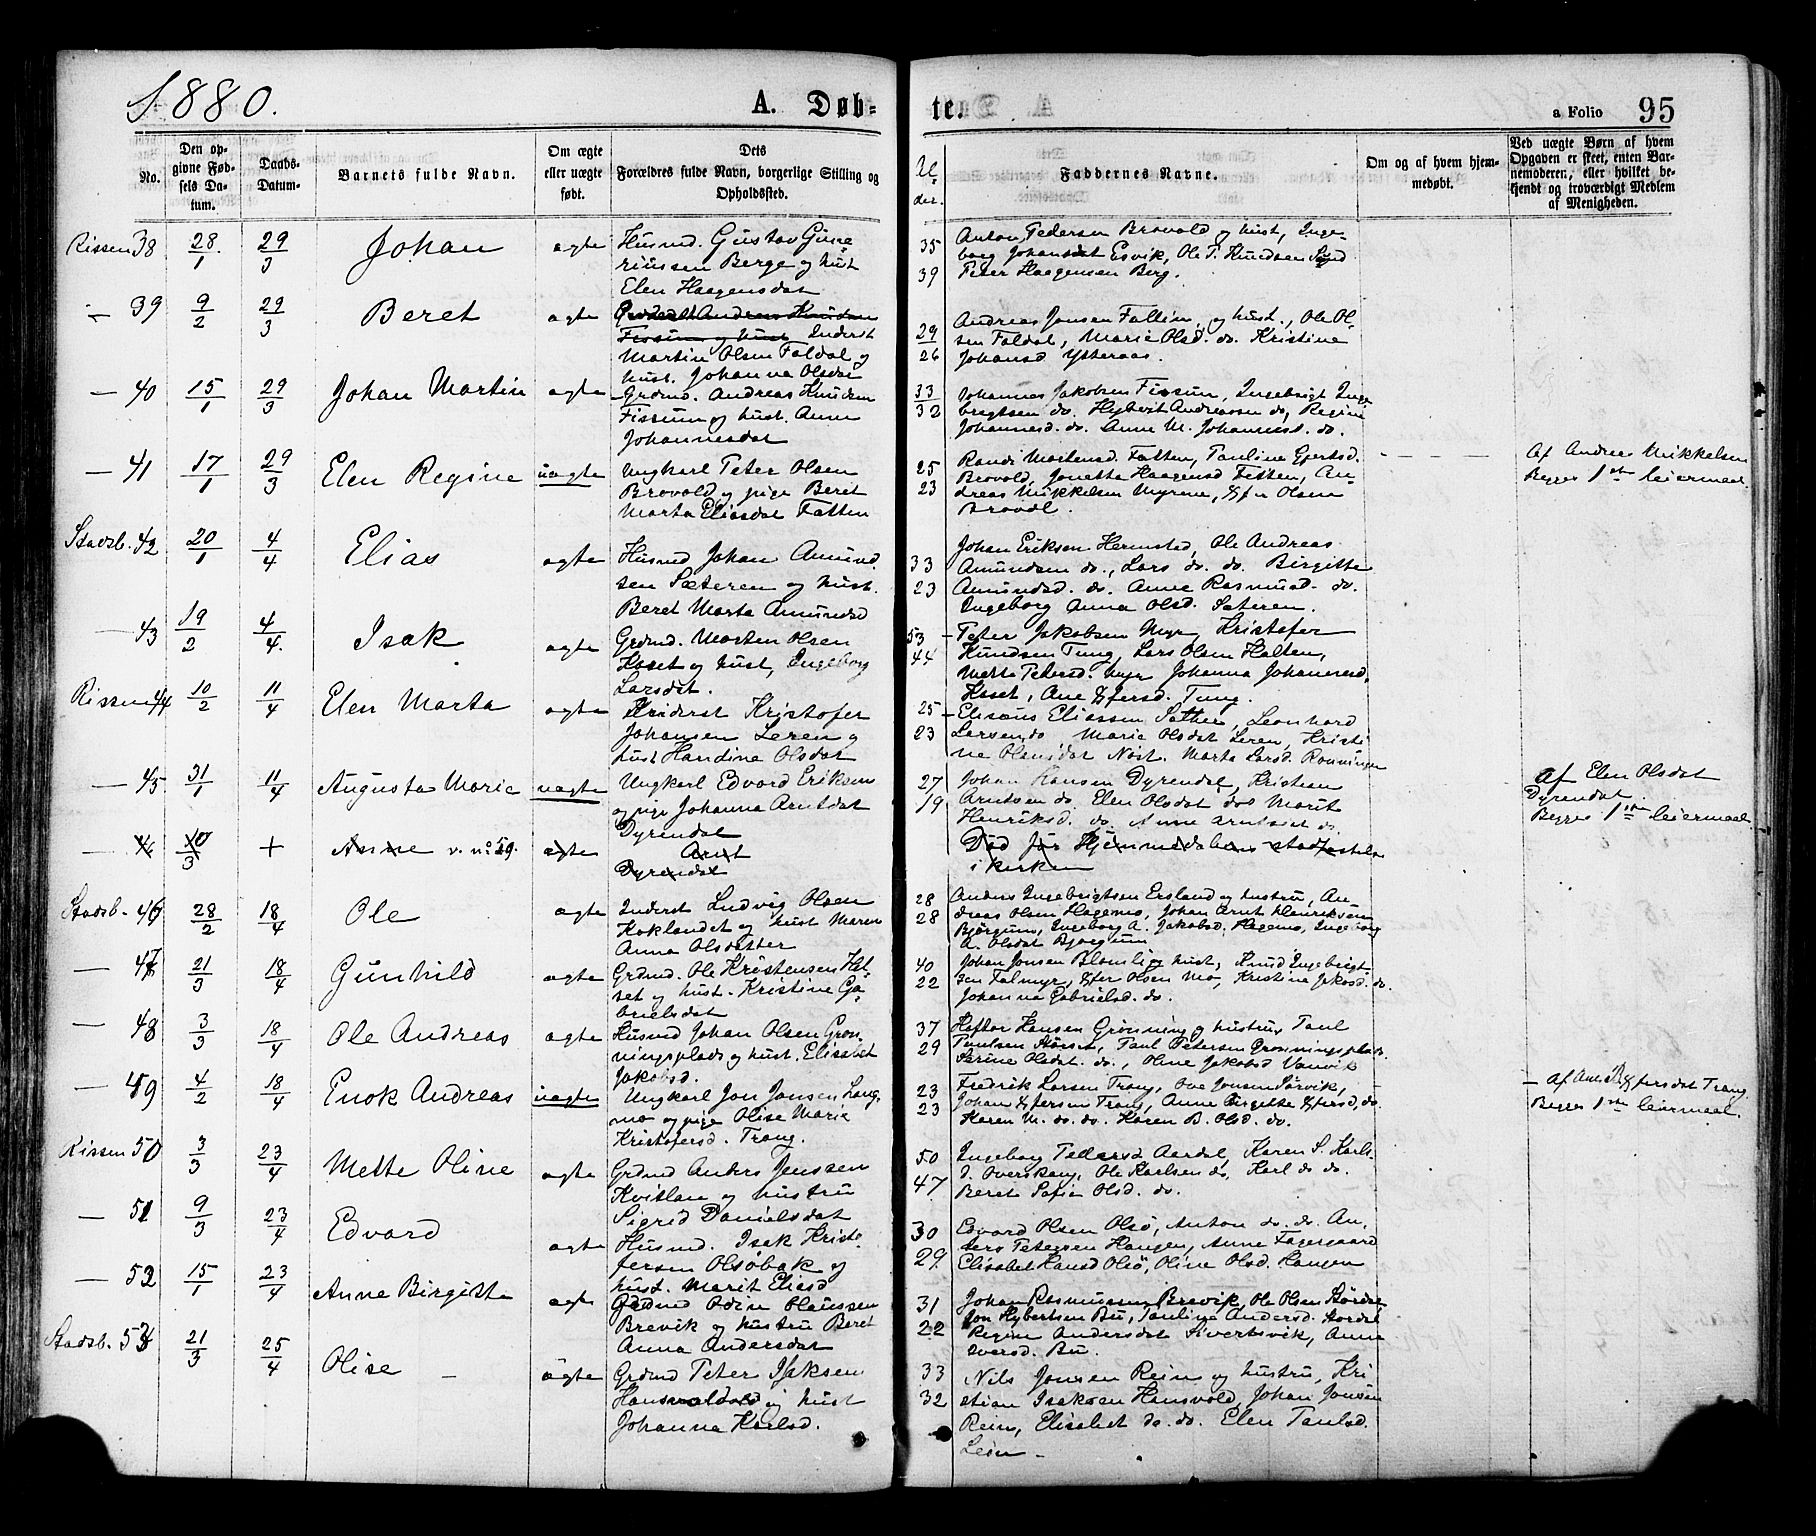 1880.
A. Døb-
te.
a Folio 95
No.
Den op-
givne Fød-
sels Da-
tum.
Daabs-
Datum.
Barnets fulde Navn.
Om ægte
eller uægte
født.
Dets
Forældres fulde Navn, borgerlige Stilling og
Opholdssted.
Al-
der.
Faddernes Navne.
Om og af hvem hjem-
medøbt.
Ved uægte Børn af hvem
Opgaven er skeet, enten Bar-
nemoderen, eller hvilket be-
kjendt og troværdigt Medlem
af Menigheden.
Rissen 38 28/1 29/3 Johan ægte
Husmd. Gustav Gune-
riussen Berge og hust
Elen Haagensdat
35
39
Anton Pedersen Brovold og hust, Inge-
borg Johansdat Esvik, Ole P. Knudsen
Peter Haagensen Berg.
— 39 9/2 29/3 Beret ægte
Andreas Knudsen
Fissum og hust Inderst
Martin Olsen Foldal og
hust. Johanna Olsdat
29
26
Andreas Jonsen Fallin og hust., Ole Ol-
sen Foldal, Marie Olsd. do. Kristine
Johansd Ytteraas.
— 40 15/1 29/3 Johan Martin ægte
Grdmd. Andreas Knudsen
Fissum og hust. Anne
Johannesdat
33
32
Johannes Jakobsen Fissum, Ingebrigt Inge-
brigtsen do. Andreassen do, Regine
Johannesd. do. Anne M. Johannesd. do.
— 41 17/1 29/3 Elen Regine uægte
Ungkarl Peter Olsen
Brovold og pige Beret
Marta Eliasdat Fatten
25
23
Randi Mortensd. Fatten, Pauline Gjertsd.
Brovold, Jonetta Haagensd Fatten, An-
dreas Mikkelsen Myrene, Olsen
Brovol.
Af Andreas Mikkelsen
Begges 1ste leiermaal.
Stadsb. 42 20/1 4/4 Elias ægte
Husmd Johan Amund-
sen Sæteren og hust.
Beret Marta Amundsd
33
23
Johan Eriksen Hermstad, Ole Andreas
Amundsen do., Lars do. do. Birgitte
Amundsd. do. Anne Rasmusd. do.
Ingeborg Anna Olsd. Sæteren.
— 43 19/2 4/4. Isak ægte
Grdmd. Morten Olsen
Hasset og hust, Ingeborg
Larsdat.
53
44
Peter Jakobsen Myr, Kristofer
Knudsen Tung, Lars Olsen Halten,
Mette Petersd. Myr Johanna Johannesd,
Hasset, Ane Tung.
Rissen 44 10/2 11/4 Elen Marta ægte
Inderst Kristofer
Johansen Leren og
hust Handine Olsdat
25
23
Elisæus Eliassen Sæther, Leonhard
Larsen do Marie Olsdat Leren, Kristi-
ne Olsdat Marta Larsd. Rønningen
— 45 31/1 11/4 Augusta Marie uægte
Ungkarl Edvard Eriksen
og pige Johanna Arntsdat
Dyrendal
27
19
Johan Hansen Dyrendal, Kristian
Arntsen do, Elen Olsdat do Marit
Henriksd. do, Anne Arntsdat do.
Af Elen Olsdat
Dyrendal.
Begges 1ste leiermaal.
— 10/3 + Anne v. no 59. ægte
Arnt
Dyrendal
Død før Hjemmedaaben stadfæstedes
i kirken
Stadsb. 46 28/2 18/4 Ole ægte
Inderst Ludvig Olsen
Koklandet og hust Maren
Anna Olsdatter
28
28
Anders Ingebrigtsen Ersland og hustru, An-
dreas Olsen Hagemo, Johan Arnt Henriksen
Bjørgum, Ingeborg A. Jakobsd. Hagemo, Ingeborg
A. Olsdat Bjørgum
— 47 21/3 18/4 Gunhild ægte
Grdmd. Ole Kristensen Has-
set og hust. Kristine Ga-
brielsdat
40
22
Johan Jonsen Blomli og hust, Knud Ingebrigt-
sen Falmyr, Olsen Mo, Kristine Jakobsd. do.
Johanna Gabrielsd. do.
— 48 3/3 18/4 Ole Andreas ægte
Husmd Johan Olsen Grøn-
ningsplads og hust. Elisabet
Jakobsd.
37
29
Haftor Hansen Grønning og hustru, Paul
Paulsen Paul Petersen Grønningsplads
Serine Olsdat. do., Oline Jakobsd Vanvik
— 49 4/2 18/4 Enok Andreas uægte
Ungkarl Jon Jonsen Lang-
mo og pige Olise Marie
Kristofersd. Trang.
23
23
Fredrik Larsen Trang, Ove Jonsen
Johan Trang, Anne Birgitte do.
Karen M. do. do. Karen B. Olsd. do.
— Af Ane B. Trang
Begges 1ste leiermaal.
Rissen 50 3/3 23/4 Mette Oline ægte
Grdmd Anders Jenssen
Kvitland og hustru
Sigrid Danielsdat
50
47
Ingeborg Pedersd Aardal, Karen S. Karls-
d. Overskaug, Ole Karlsen do, Karl do do.
Beret Sofie Olsd. do.
— 51 9/3 23/4 Edvard ægte
Husmd. Isak Kristo-
fersen Olsøbak og
hust. Marit Eliasd
30
29
Edvard Olsen Olsø, Anton do. do. An-
ders Petersen Haugen, Anne Fagergaard
Elisabet Hansd Olsø, Oline Olsd. Haugen
— 52 15/1 23/4 Anne Birgitte ægte
Grdmd Odin Olaussen
Brevik og hustru Beret
Anna Andersdat
31
22
Johan Rasmussen Brevik, Ole Olsen Stordal
Jon Hybertsen Bu, Pauline Andersd. Stordal
Regine Andersdat Anne
Iversd. Bu.
Stadsb. 53 21/3 25/4 Olise — ægte
Grdmd Peter Isaksen
Hansvold og hust
Johanna Karlsd.
33
32
Nils Jonsen Rein og hustru, Kri-
stian Isaksen Hansvold, Johan Jonsen
Rein, Elisabet do. do. Elen Paulsd.
Lein —